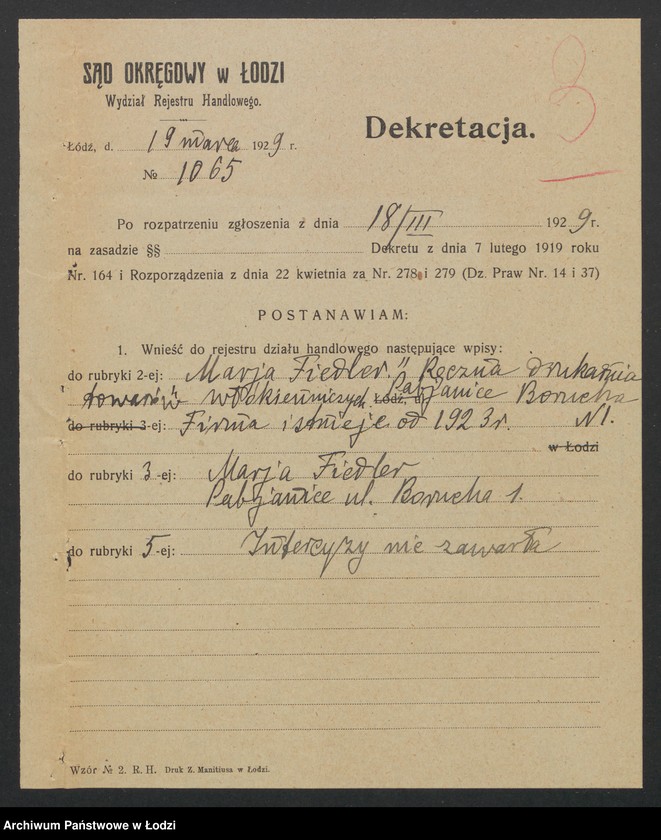 SĄD OKRĘGOWY w ŁODZI
Wydział Rejestru Handlowego.
3
Dekretacja.
Łódź, d. 19 marca 1929 r.
№ 1065
Po rozpatrzeniu zgłoszenia z dnia 18/III 1929 r.
na zasadzie §§ Dekretu z dnia 7 lutego 1919 roku
Nr. 164 i Rozporządzenia z dnia 22 kwietnia za Nr. 278 i 279 (Dz. Praw Nr. 14 i 37)
POSTANAWIAM:
1. Wnieść do rejestru działu handlowego następujące wpisy:
do rubryki 2-ej: Marja Fiedler." Ręczna drukarnia
towarów włókienniczych, Łódź, ul. Pabjanice Borucha
do rubryki 3-ej: Firma istnieje od 1923 r. N1.
w Łodzi
do rubryki 3-ej: Marja Fiedler
Pabjanice ul. Borucha 1.
do rubryki 5-ej: Intercyzy nie zawarła
Wzór № 2. R. H. Druk Z. Manitiusa w Łodzi.
Archiwum Państwowe w Łodzi